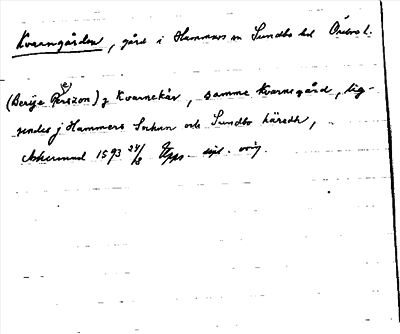 Kvarngården, gård i Hammars sn Sundbo hd Örebro l.
(Børije Perszon) j Kvarnekär, samme kvarnegård, lig-
gendes j Hammers Sochen och Sundbo häredh,
Askersund 1593 24/3 Upps. dipl. orig.